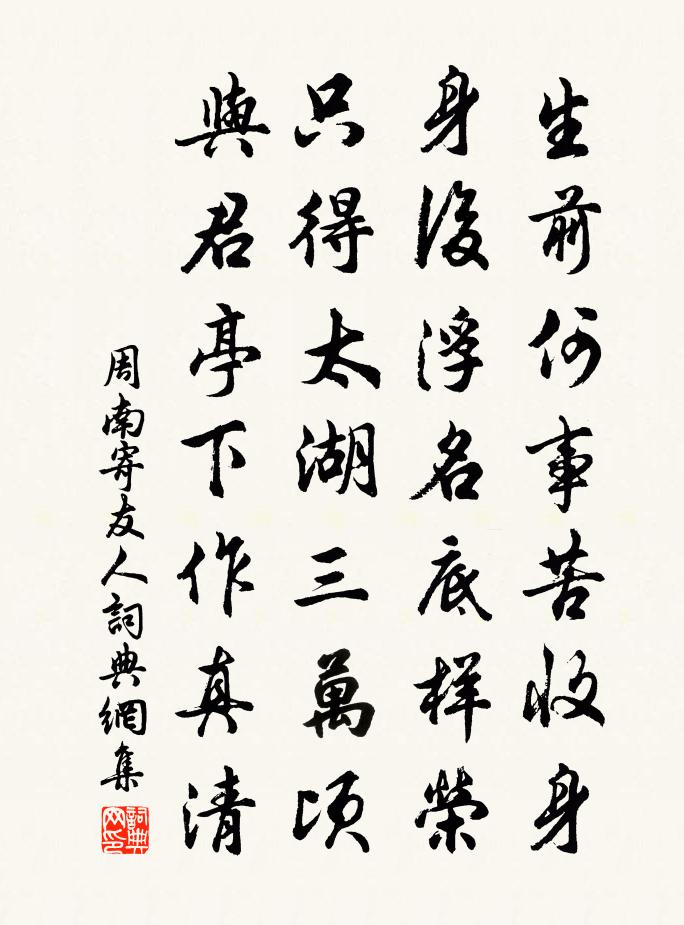 生前何事苦收身
身後浮名底样榮
只得太湖三萬頃
與君亭下作真清
周南寄友人詞典網集
詞典网印